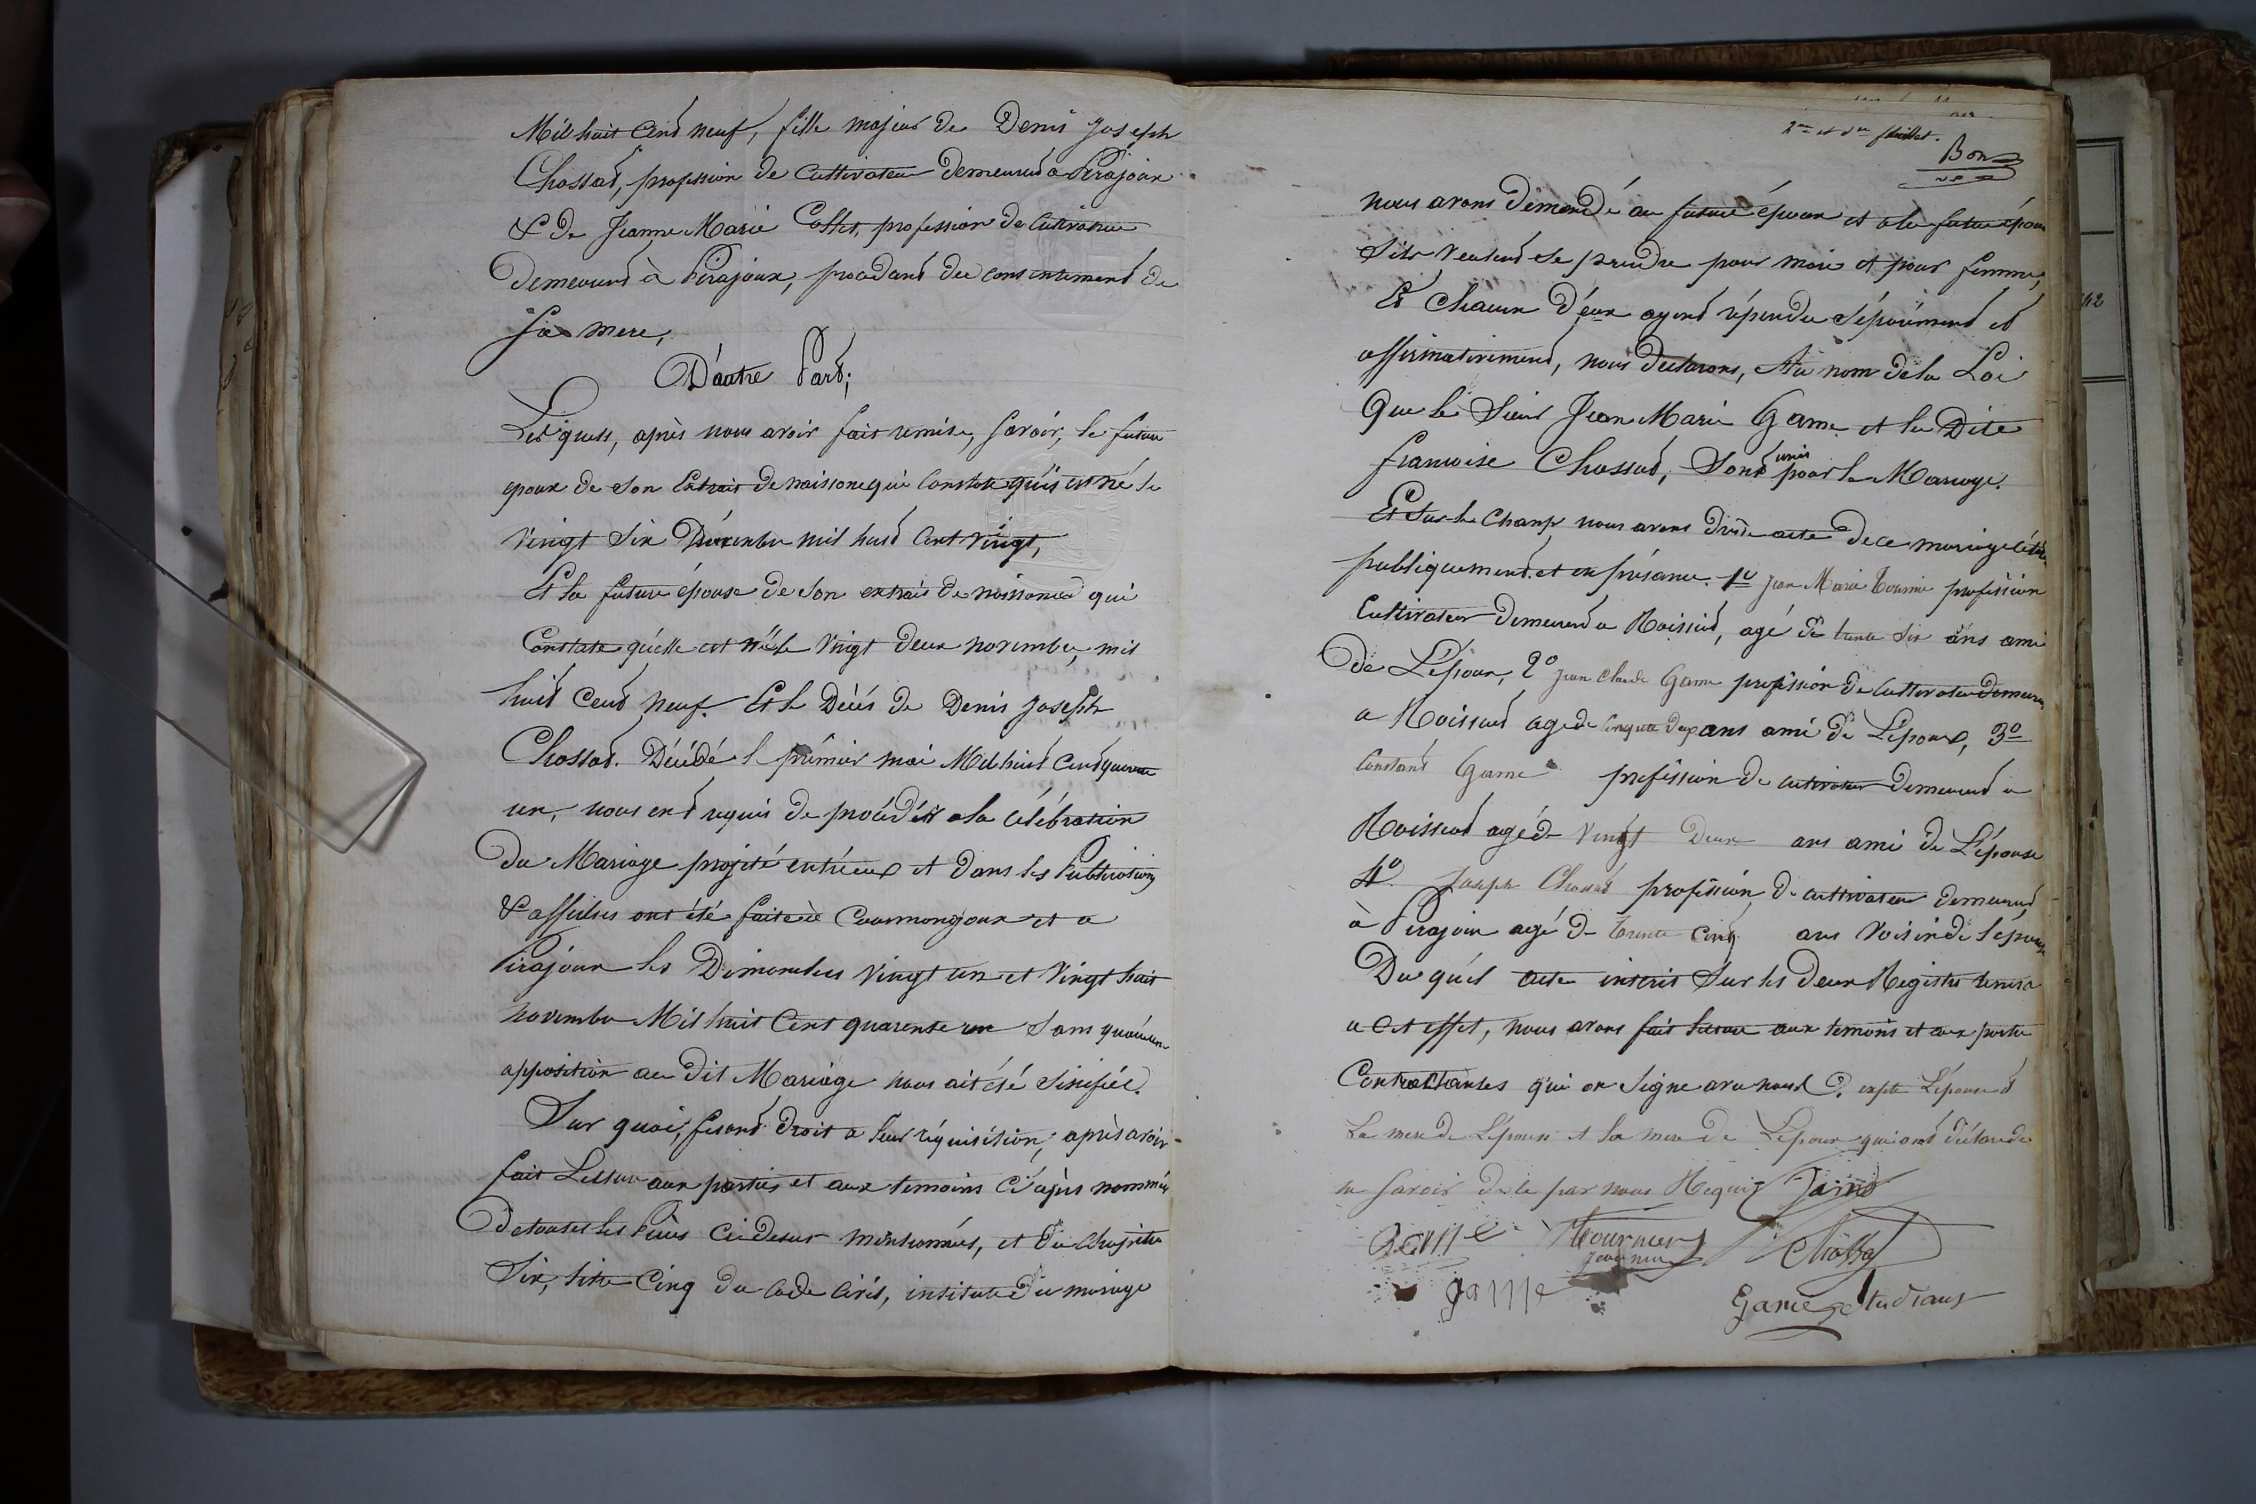 Mil huit Cend neuf, fille majeur de Denis Joseph
Chossad, profession de Cultivateur demeurend a Pirajoux
& de Jeanne Marie Collet, profession de Cultivatrice
Demeurend à Pirajoux, procedand du consentemend de
sa mere,
D'autre Pard;
Lesquels, après nous avoir fait remise, savoir, le futur
epoux de son Extrait de naissance qui Constate qu'il est né le
vingt Six Décembre mil huid Cent vingt,
Et la future épouse de son extrait de naissance qui
Constate qu'elle est née le Vingt deux novembre, mil
huid Cend neuf. Et le Décés de Denis Joseph
Chossad. Décédé le prémier mai Mil huid Cend quarente
un, nous end requis de procédér a la célébration
Du Mariage projeté entr'eux et dans les Publications
& affiches ont été faite à Courmongoux et a
Pirajoux les Dimanches vingt un et Vingt huit
novembre Mil huit Cent quarente un Sans qu'aucune
opposition au dit Mariage nous ait été Sinifiée.
Sur quoi, fesand droit a leur réquisition, après avoir
fait Lecture aux parties et aux temoins Ci après nommés
de toutes les Pièces Ci desus mentionnées, et du Chapitre
Six, titre Cinq du Code Civil, intitulé du mariage
2me et der feuillet.
Bon
nous avons démandé au futur époux et a la future épouse
S'ils veulend se prendre pour mari et pour femme,
Et Chacun d'éux ayend répendu Séparément et
affirmativemend, nous déclarons, Au nom de la Loi
Que le Sieur Jean Marie Game et la Dite
francoise Chossad, Sond unis pour le Mariage.
Et Sur le Champ, nous avons drésé acte de ce mariage célébré
publiquemend et en présance 1º Jean Marie Tournier profession
Cultivateur Demeurend a Roissiad, agé de trente Six ans ami
de L'époux, 2º Jean Claude Game profession de Cultivateur Demeurend
a Roissiad age de Cinquante deux ans ami de L'époux, 3º
Constand Game profession de cultivateur Demeurend a
Roissiad agé de Vingt Deux ans ami de L'épouse
4º Joseph Chossad profession de cultivateur demeurend
à Pirajoux agé de trente Cinq ans Voisin de l'épouse
Du quel acte inscrit Sur les deux Registres tenus
a Cet effet, nous avons fait lecture aux temoins et aux parties
Contractantes qui on Signe avec nous exepté L'épouse
La mere de L'epouse et la mere de L'époux qui ont déclaré
ne Savoir de le par nous Requis
Game Tournier Chossa
game Game etudiant